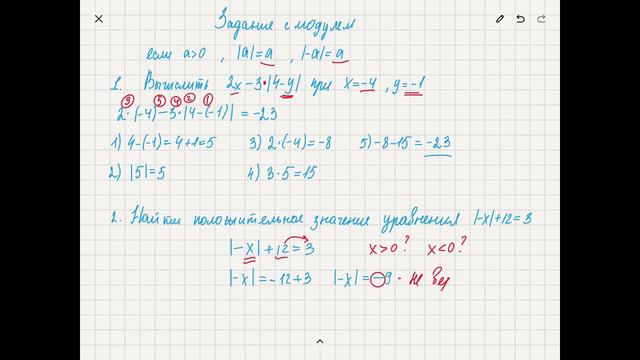 Задание с модулем
если a>0 , |a|=a , |-a|=a
1. Вычислить 2x-3·|4-y| при x=-4, y=-1
3 5 4 2 1
2·(-4)-3·|4-(-1)|=-23
1) 4-(-1)=4+1=5 3) 2·(-4)=-8 5) -8-15=-23
2) |5|=5 4) 3·5=15
2. Найти положительное значение уравнения |-x|+12=3
|-x|+12=3 x>0? x<0?
|-x|=-12+3 |-x|=-9 - не вер